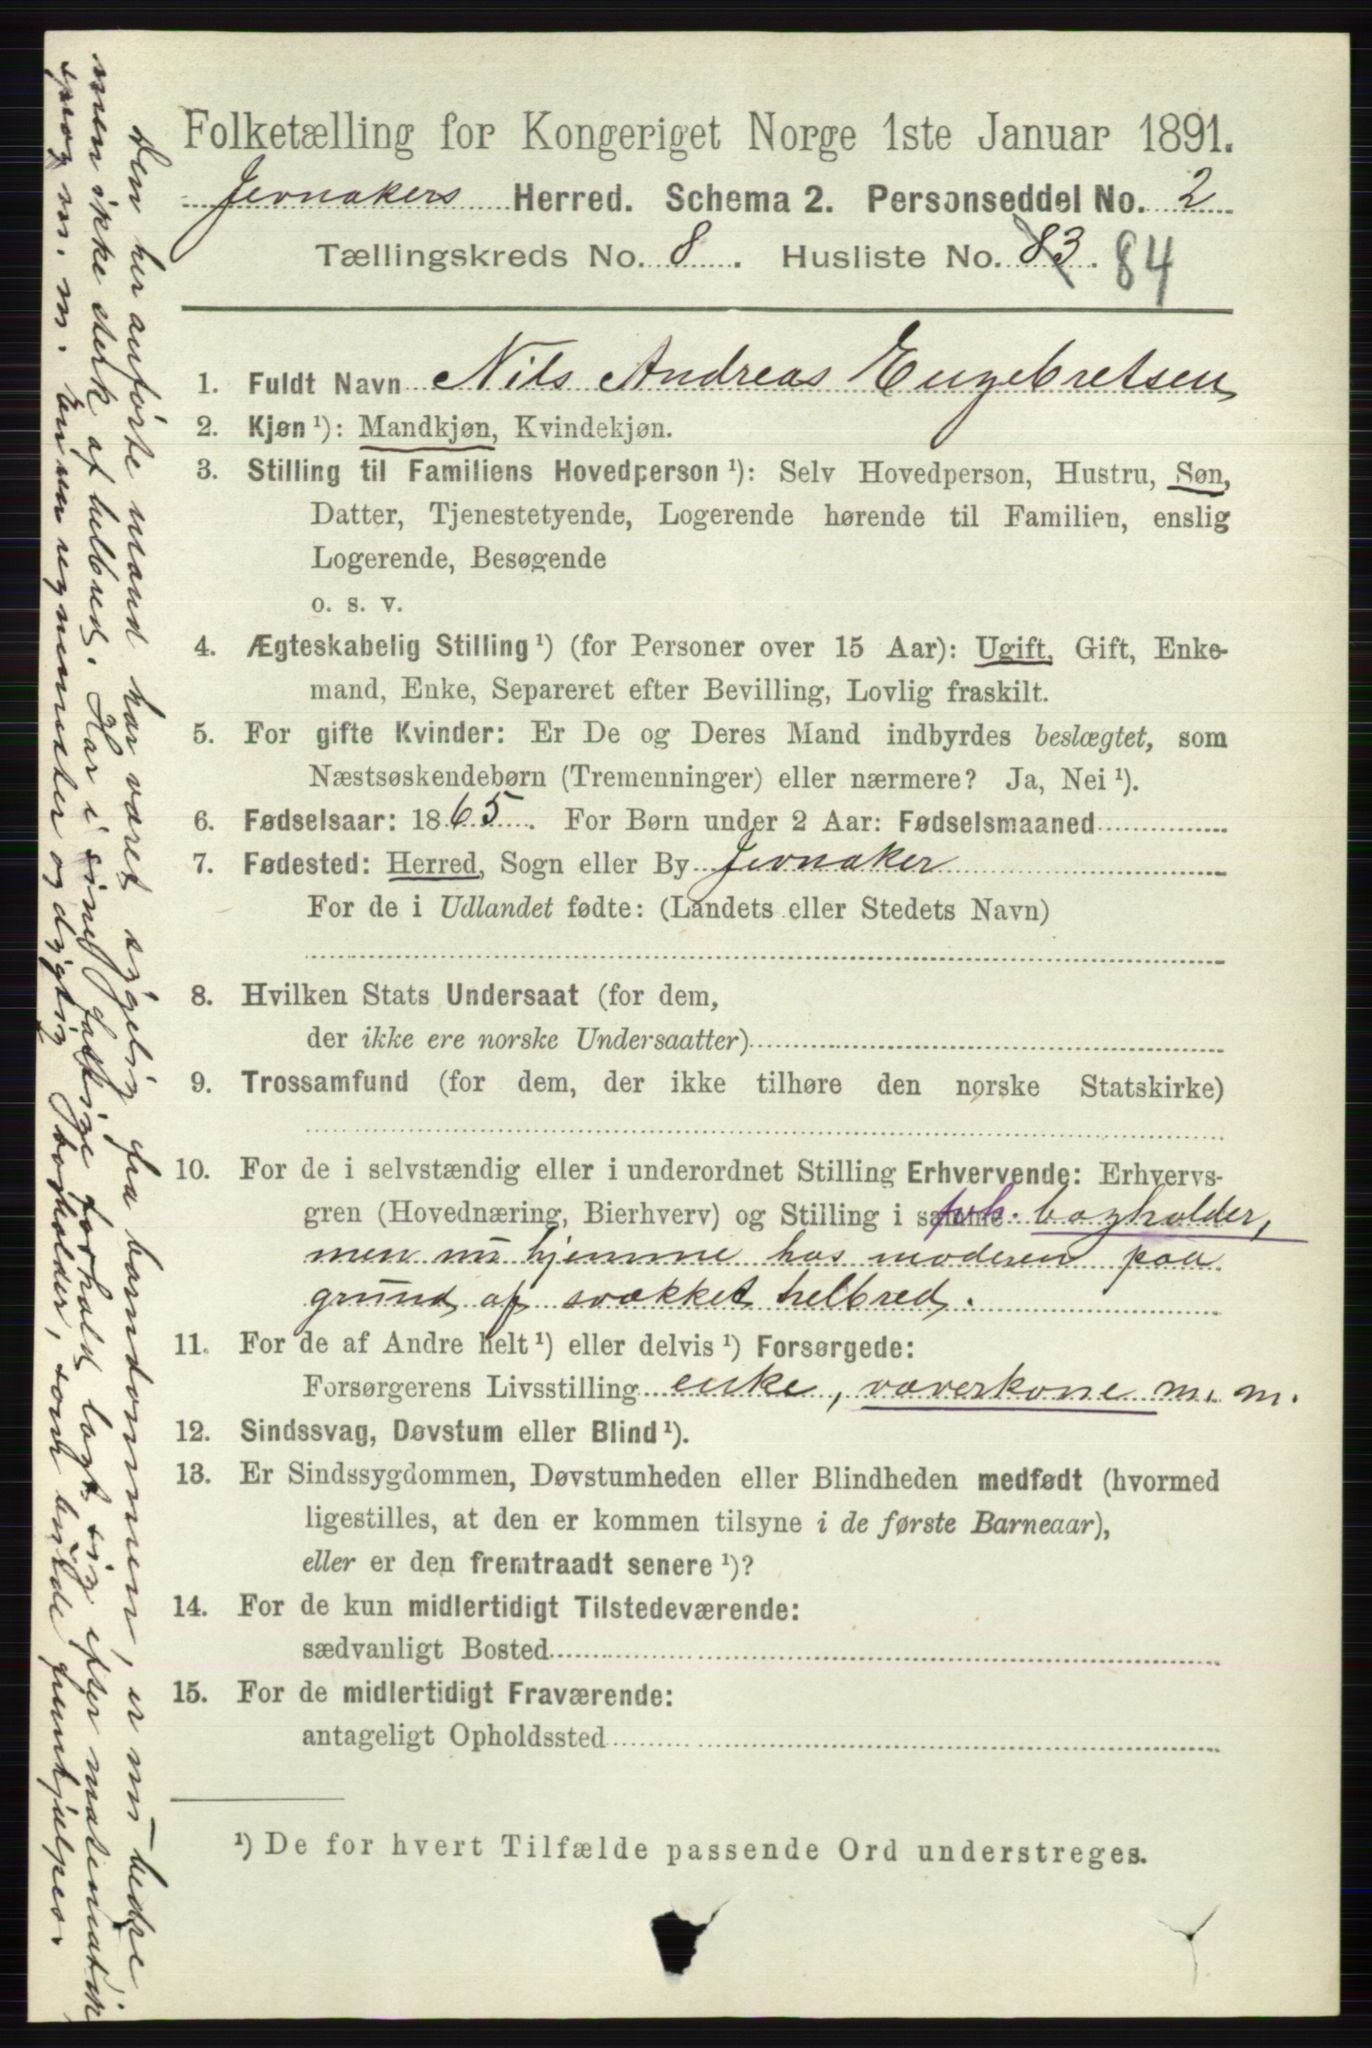 Folketælling for Kongeriget Norge 1ste Januar 1891.
Jevnakers Herred. Schema 2. Personseddel No. 2
Tællingskreds No. 8. Husliste No. 83. 84
1. Fuldt Navn Nils Andreas Engebretsen
2. Kjøn ¹): Mandkjøn, Kvindekjøn.
3. Stilling til Familiens Hovedperson ¹): Selv Hovedperson, Hustru, Søn,
Datter, Tjenestetyende, Logerende hørende til Familien, enslig
Logerende, Besøgende
o. s. v.
4. Ægteskabelig Stilling ¹) (for Personer over 15 Aar): Ugift, Gift, Enke-
mand, Enke, Separeret efter Bevilling, Lovlig fraskilt.
5. For gifte Kvinder: Er De og Deres Mand indbyrdes beslægtet, som
Næstsøskendebørn (Tremenninger) eller nærmere? Ja, Nei ¹).
6. Fødselsaar: 1865. For Børn under 2 Aar: Fødselsmaaned
7. Fødested: Herred, Sogn eller By Jevnaker
For de i Udlandet fødte: (Landets eller Stedets Navn)
8. Hvilken Stats Undersaat (for dem,
der ikke ere norske Undersaatter)
9. Trossamfund (for dem, der ikke tilhøre den norske Statskirke)
10. For de i selvstændig eller i underordnet Stilling Erhvervende: Erhvervs-
gren (Hovednæring, Bierhverv) og Stilling i samme bogholder,
men nu hjemme hos moderen paa
grund af svækket helbred.
11. For de af Andre helt ¹) eller delvis ¹) Forsørgede:
Forsørgerens Livsstilling enke, væverkone m. m.
12. Sindssvag, Døvstum eller Blind ¹).
13. Er Sindssygdommen, Døvstumheden eller Blindheden medfødt (hvormed
ligestilles, at den er kommen tilsyne i de første Barneaar),
eller er den fremtraadt senere ¹)?
14. For de kun midlertidigt Tilstedeværende:
sædvanligt Bosted
15. For de midlertidigt Fraværende:
antageligt Opholdssted
¹) De for hvert Tilfælde passende Ord understreges.
Den her anførte mand har været sygelig fra barndommen, er nu bedre
men ikke sterk af helbred. Har i sine forhold lagt sig efter matematik
sprog m. m. Enven regnemester og dygtig bogholder, som burde fremhjælpes.